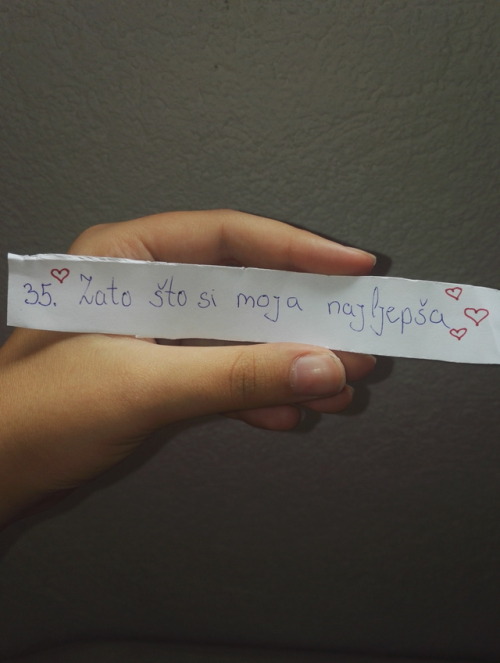 35. Zato što si moja najljepša